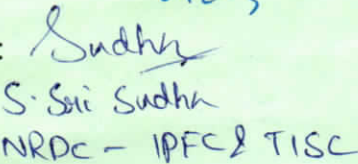 : Sudha
S. Sri Sudha
NRDC - IPFC & TISC